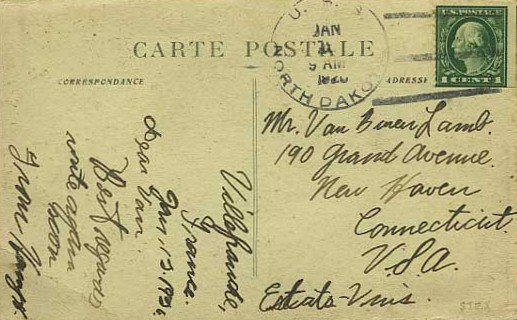 CARTE POSTALE
CORRESPONDANCE
ADRESSE
U. S. S
JAN
9 AM
1920
NORTH DAKO
U.S. POSTAGE
1 CENT 1
Villefranche,
France.
Jan, 13, 1920,
Dear Van
Best regards
write again
soon
From
Mr. Van Buren Lamb.
190 Grand Avenue.
New Haven
Connecticut.
U.S.A.
Estats-Unis.